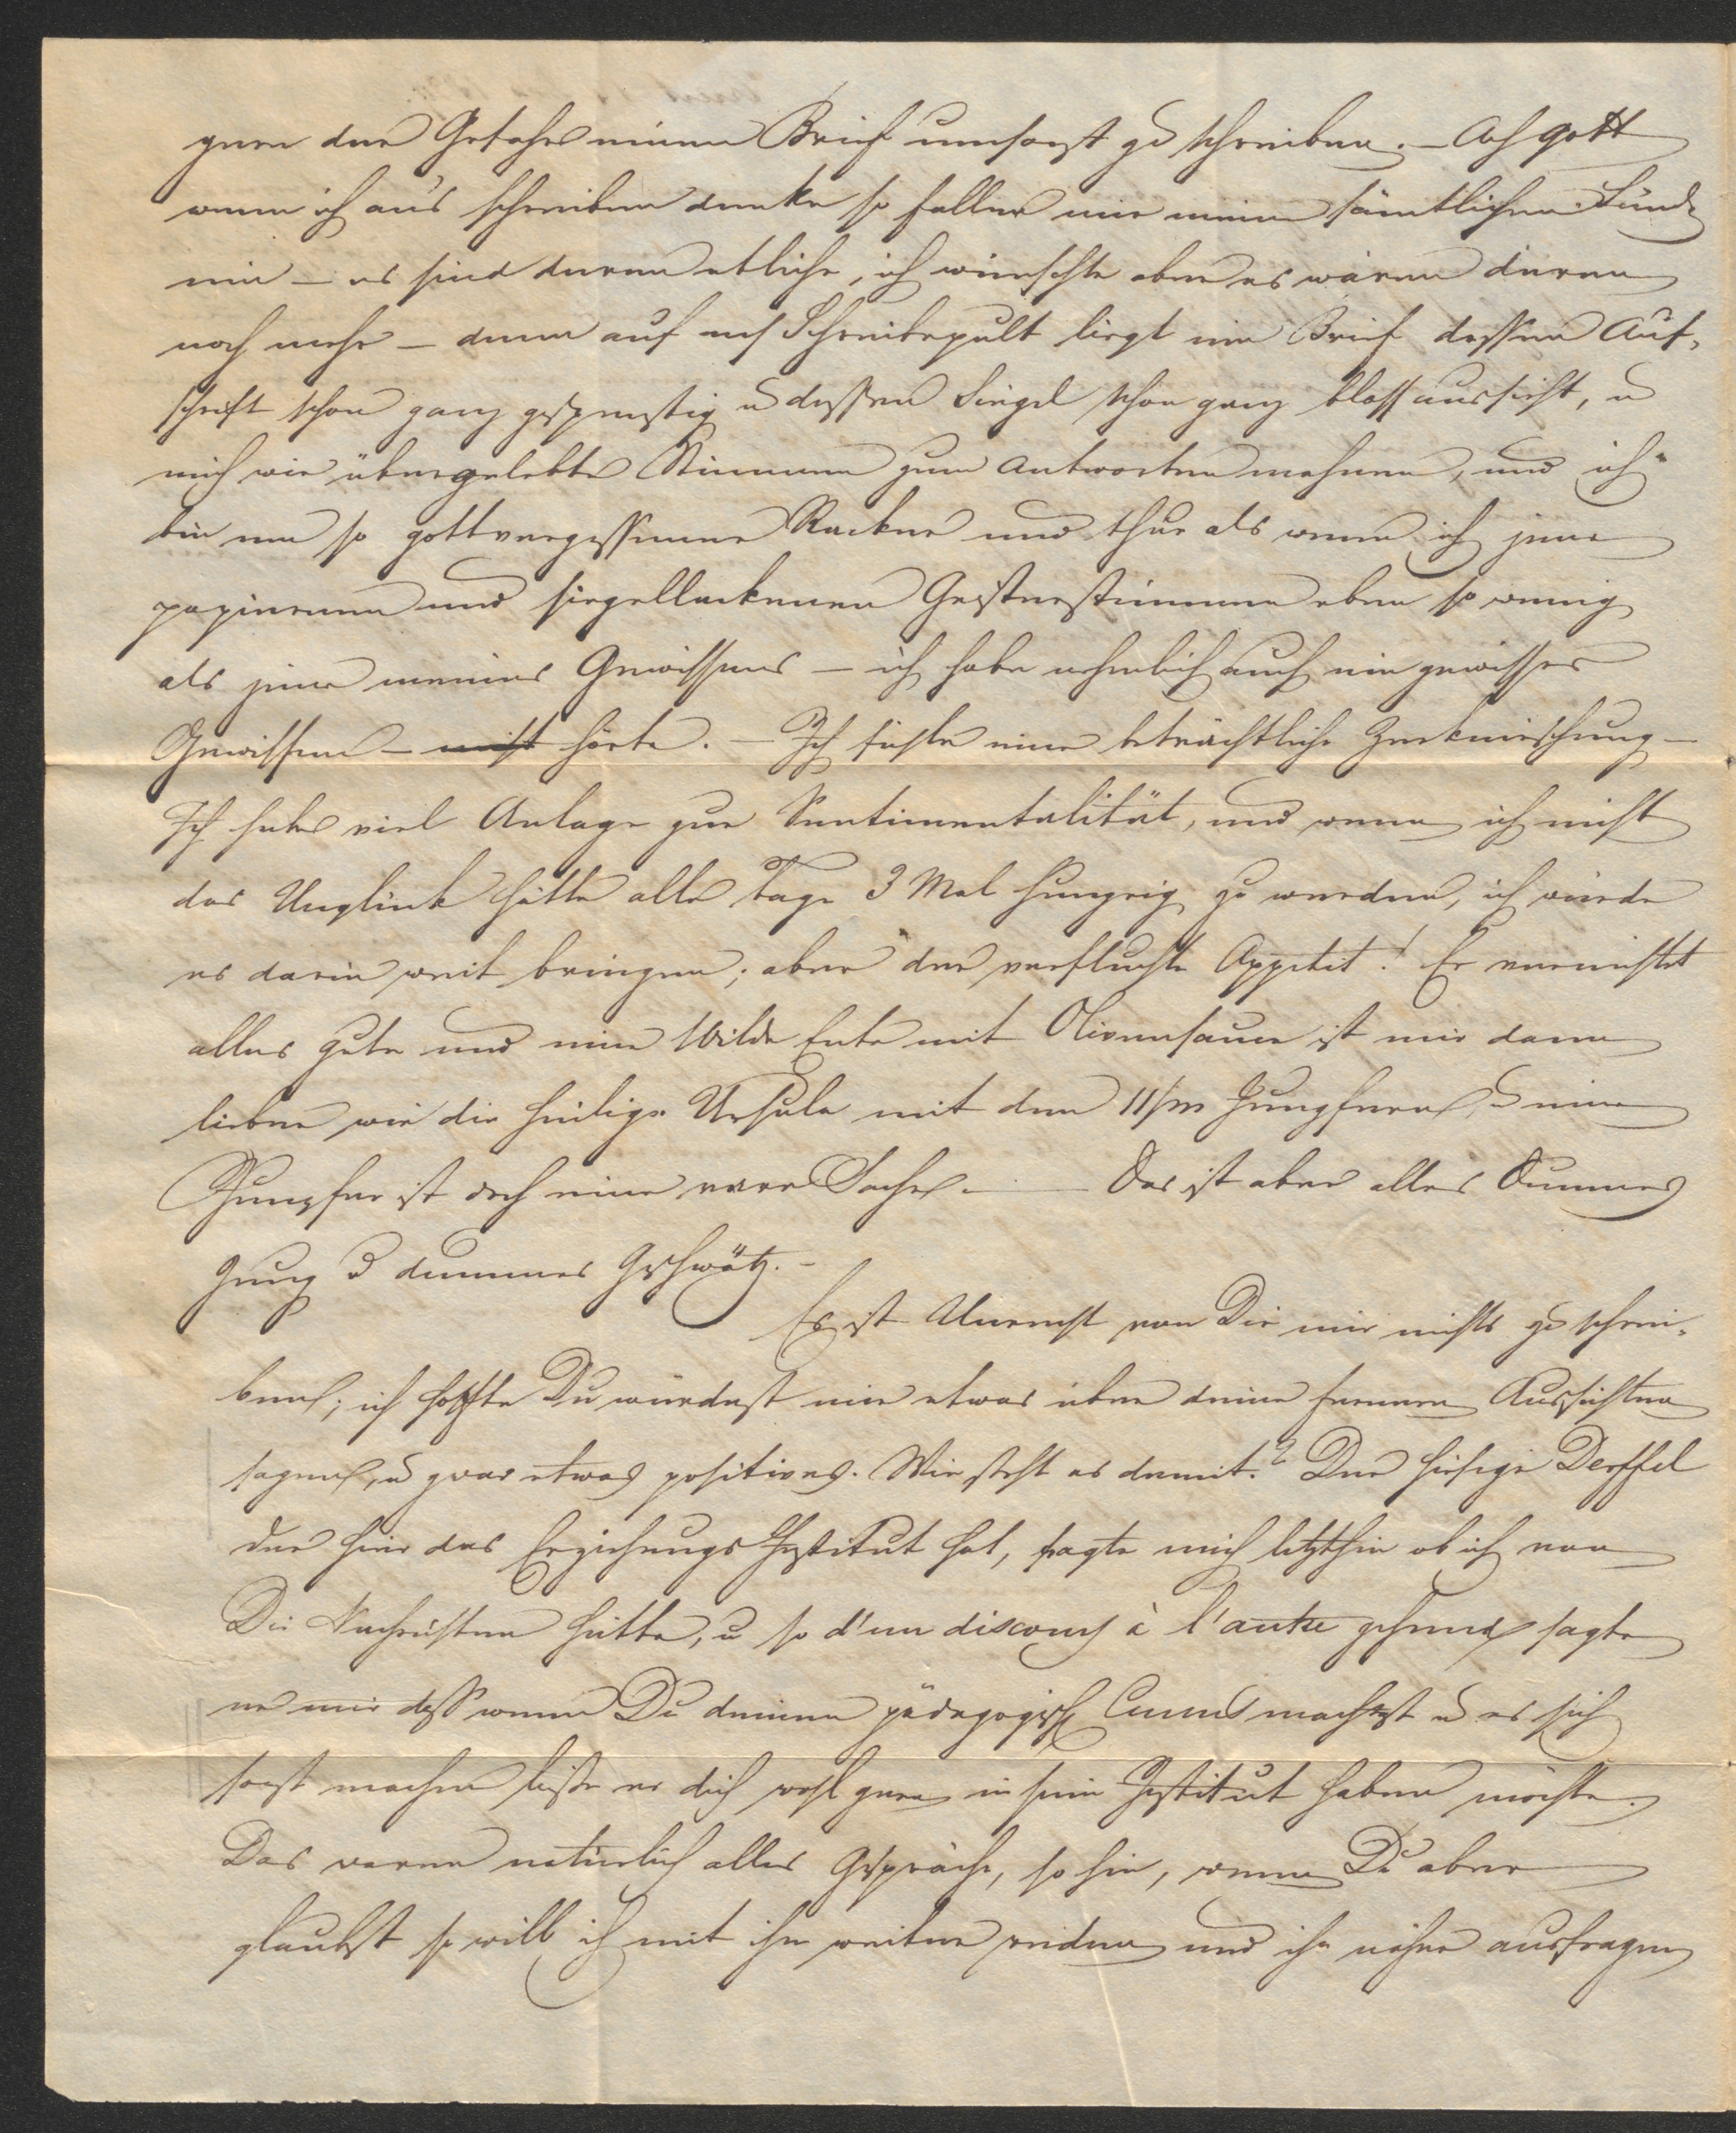 gern der Gefahr einen Brief umsonst zu schreiben. – Ach Gott
wenn ich aus schreiben denke so fallen mir meine sämtlichen Sünd
ein – es sind deren etliche, ich wünschte aber es wären deren
noch mehr – denn auf m Schreibepult liegt ein Brief dessen Auf-
schrift schon ganz gespenstig u dessen Siegel schon ganz blass aussieht, u
mich wie übergelebte Stimmen zum Antworten mahnen, und ich
bin nun so gottvergessener Racker und thue als wenn ich jene
papierenen und siegellackenen Geisterstimmen eben so wenig
als jene meines Gewissens – ich habe nehmlich auch ein gewisses
Gewissen – nicht hörte. – Ich fühle eine beträchtliche Zerknirschung –
Ich habe viel Anlage zur Sentimentalität, und wenn ich nicht
das Unglück hätte alle Tage 3 Mal hungrig zu werden, ich würde
es darin weit bringen; aber der verfluchte Appetit! Er vernichtet
alles gute und eine Wilde Ente mit Olivensauce ist mir dann
lieber wie die heilige Ursula mit den 11/m Jungfern, u eine
Jungfer ist doch eine rare Sache. – Das ist aber alles Dummes
Zeug u dummes Geschwätz. –
Es ist Unrecht von Dir mir nichts zu schrei-
ben; ich hoffte Du würdest mir etwas über deine ferneren Aussichten
sagen, u zwar etwas positives. Wie steht es damit? Der hiesige Derffel
der hier das Erziehungs Institut hat, fragte mich letzthin ob ich von
Dir Nachrichten hätte, u so d'un discours à l'autre gehend sagte
er mir dass wenn Du deinen pädagogisch Cursus machtest u es sich
sonst machen liesse er dich wohl gern in sein Institut haben möchte.
Das waren natürlich alles Gespräche, so hin, wenn Du aber
glaubst so will ich mit ihm weiter reden und ihn näher ausfragen